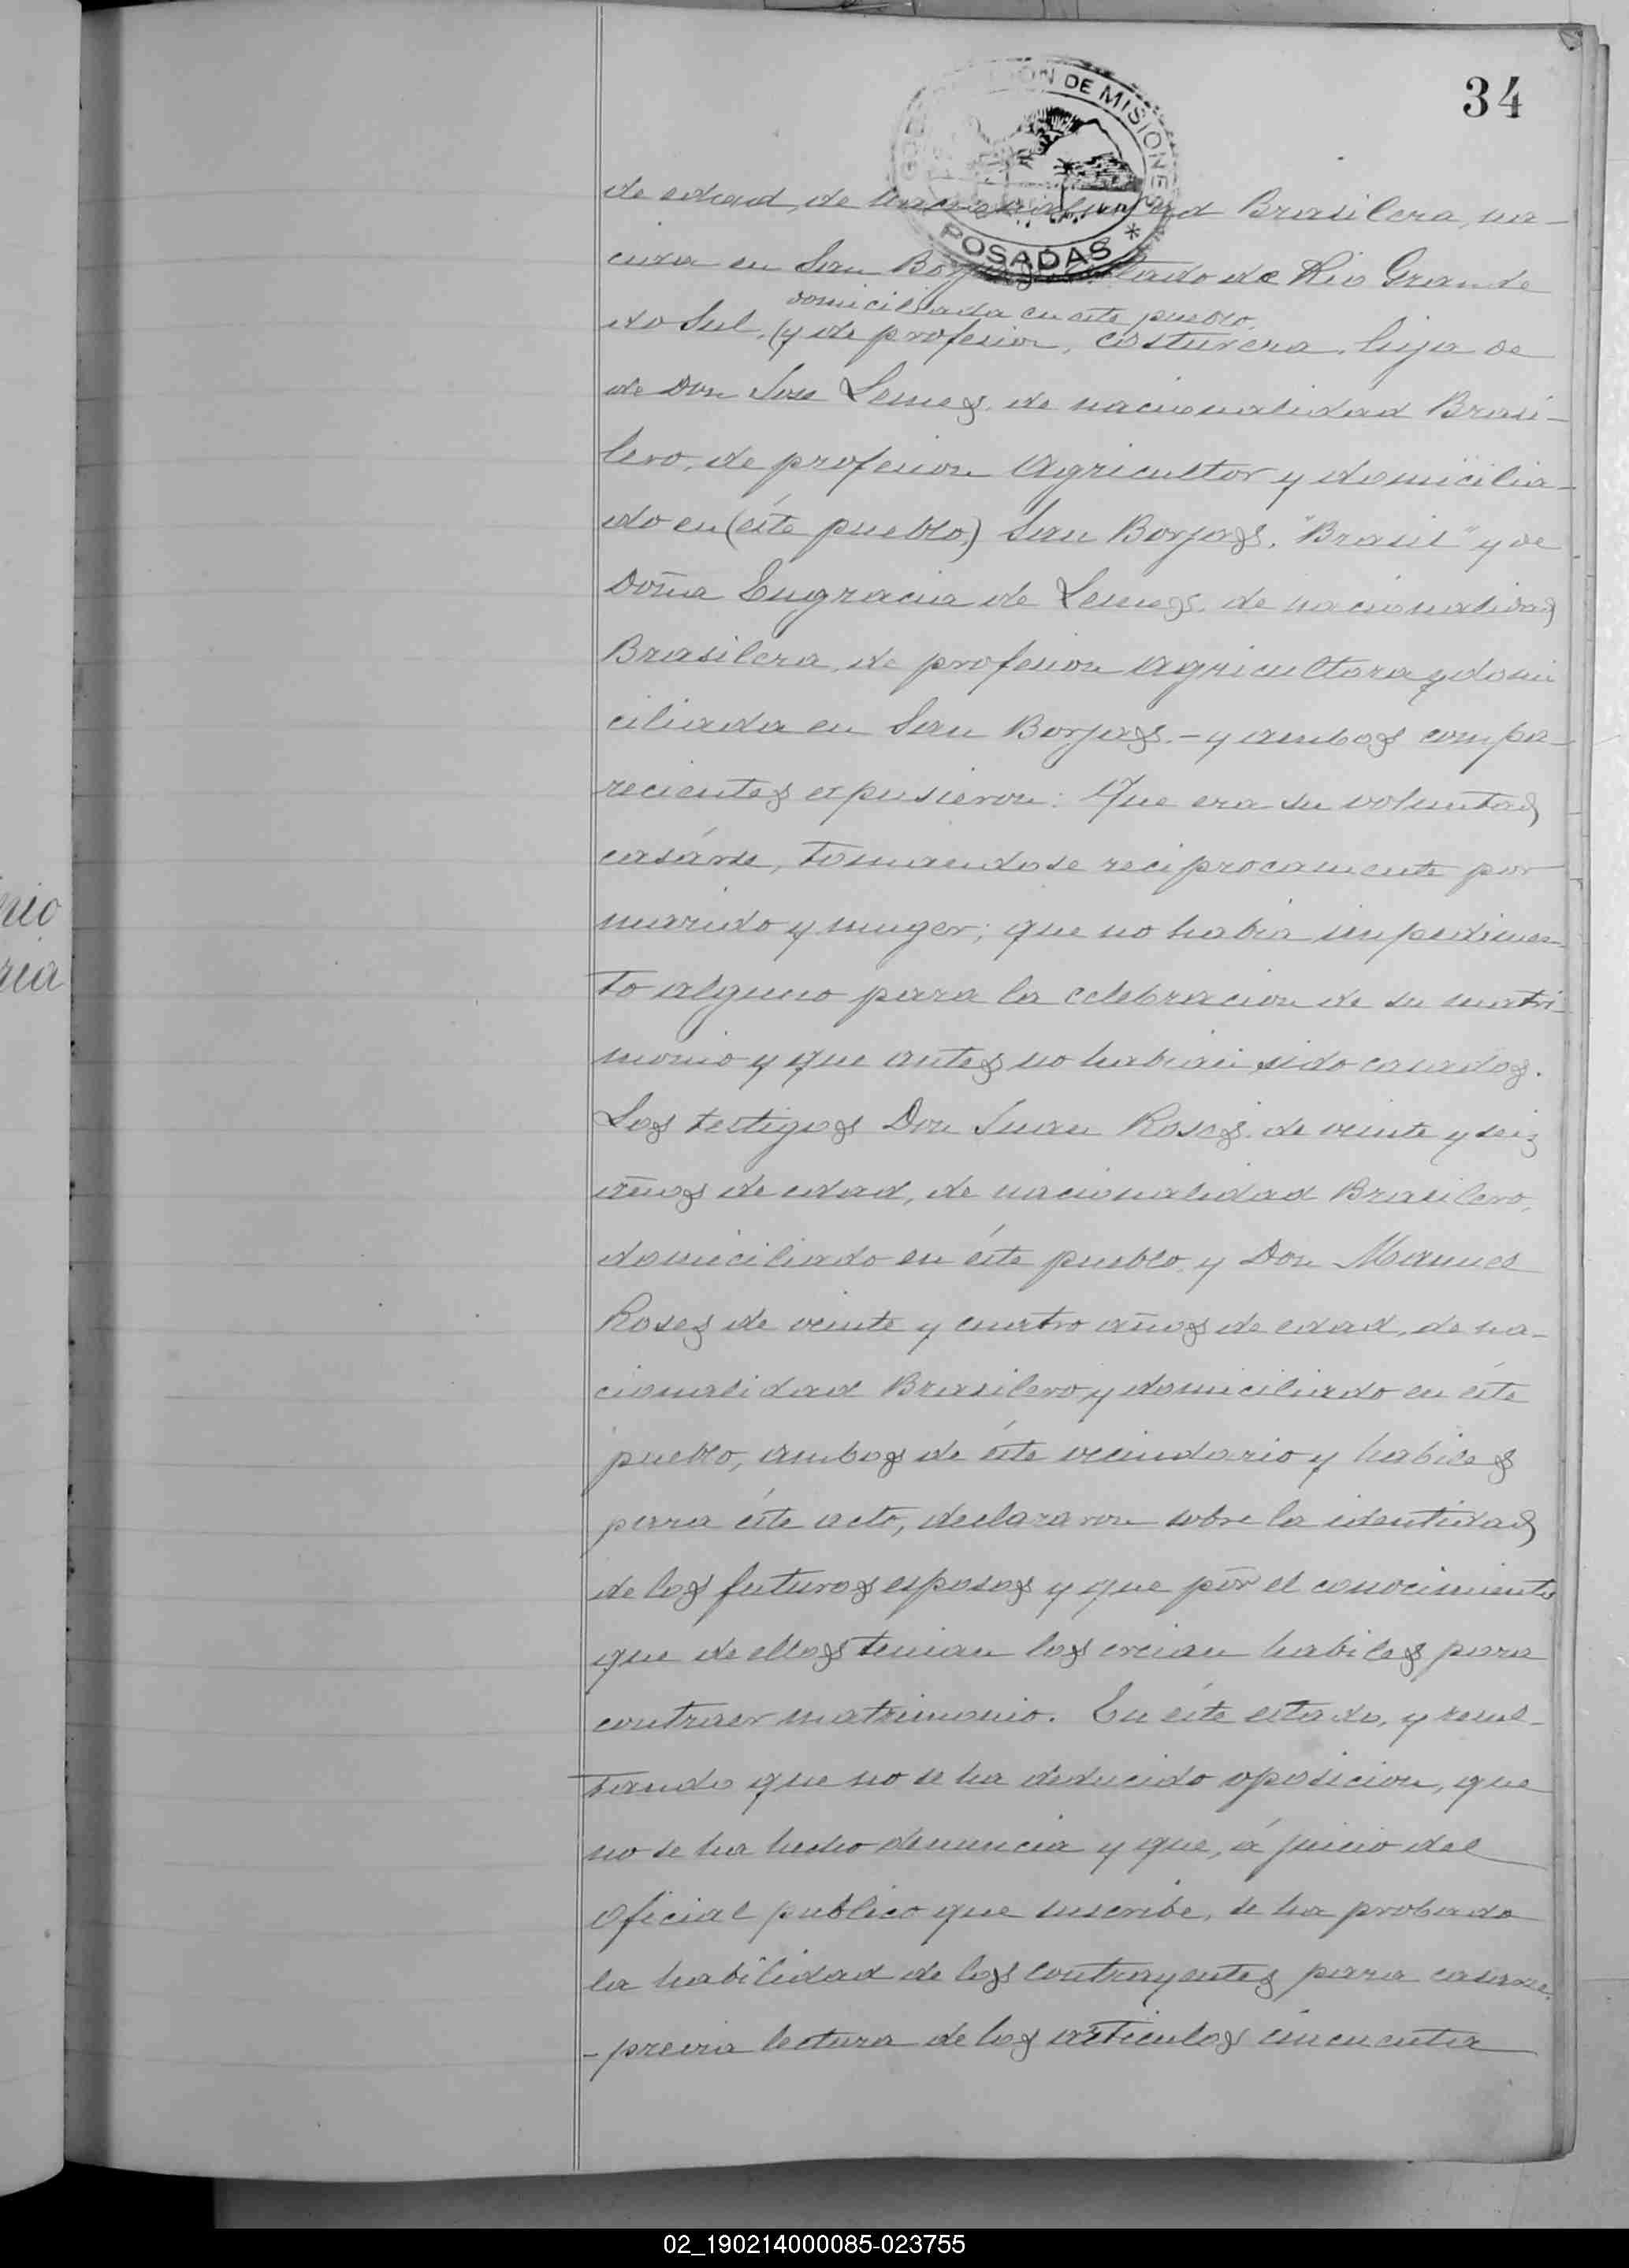 34
GOBERNACION DE MISIONES
POSADAS *
de edad, de nacionalidad Brasilera, na-
cida en San Borjas, Estado de Rio Grande
domiciliada en este pueblo.
do Sul, (y de profesion, costurera, hija de
de Don José Lemes, de nacionalidad Brasi-
lero, de profesion Agricultor y domicilia-
do en (éste pueblo,) San Borjas, "Brasil" y de
Doña Engracia de Lemes, de nacionalidad
Brasilera, de profesion Agricultora y domi
ciliada en San Borjas.- y ambos compa-
recientes expusieron: Que era su voluntad
casárse, tomandose reciprocamente por
marido y muger; que no habia impedimen-
to alguno para la celebracion de su matri-
monio y que antes no habian sido casados.
Los testigos Don Juan Roses, de veinte y seis
años de edad, de nacionalidad Brasilero,
domiciliado en éste pueblo, y Don Manuel
Roses de veinte y cuatro años de edad, de na-
cionalidad Brasilero y domiciliado en éste
pueblo, ambos de éste vecindario y habiles
para éste acto, declararon sobre la identidad
de los futuros esposos y que por el conocimiento
que de ellos tenian los creian habiles para
contraer matrimonio. En éste estado, y resul-
tando que no se ha deducido oposicion, que
no se ha hecho denuncia y que, á juicio del
Oficial publico que suscribe, se ha probado
la habilidad de los contrayentes para casarse,
- previa lectura de los articulos cincuenta
nio
ria
02_190214000085-023755